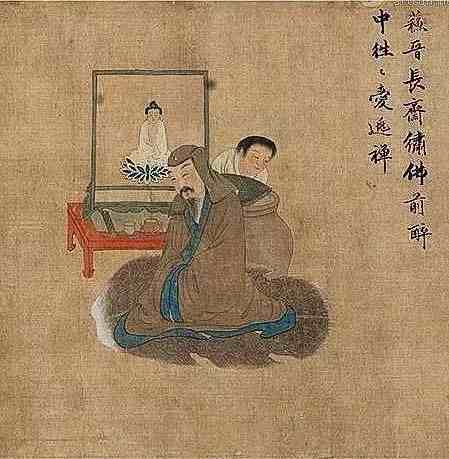 蘇晋長齋繡佛前醉
中往〻愛逃禪